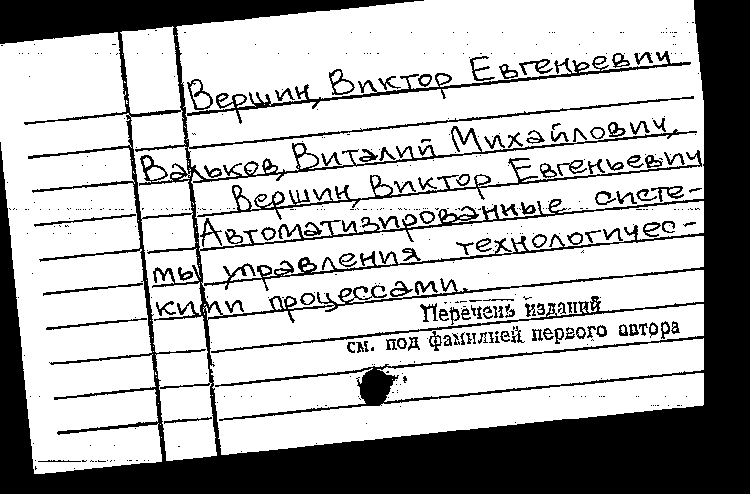 Вершин, Виктор Евгеньевич
Вальков, Виталий Михайлович,
Вершин, Виктор Евгеньевич
Автоматизированные систе-
мы управления технологичес-
кими процессами.
Перечень изданий
см. под фамилией первого автора